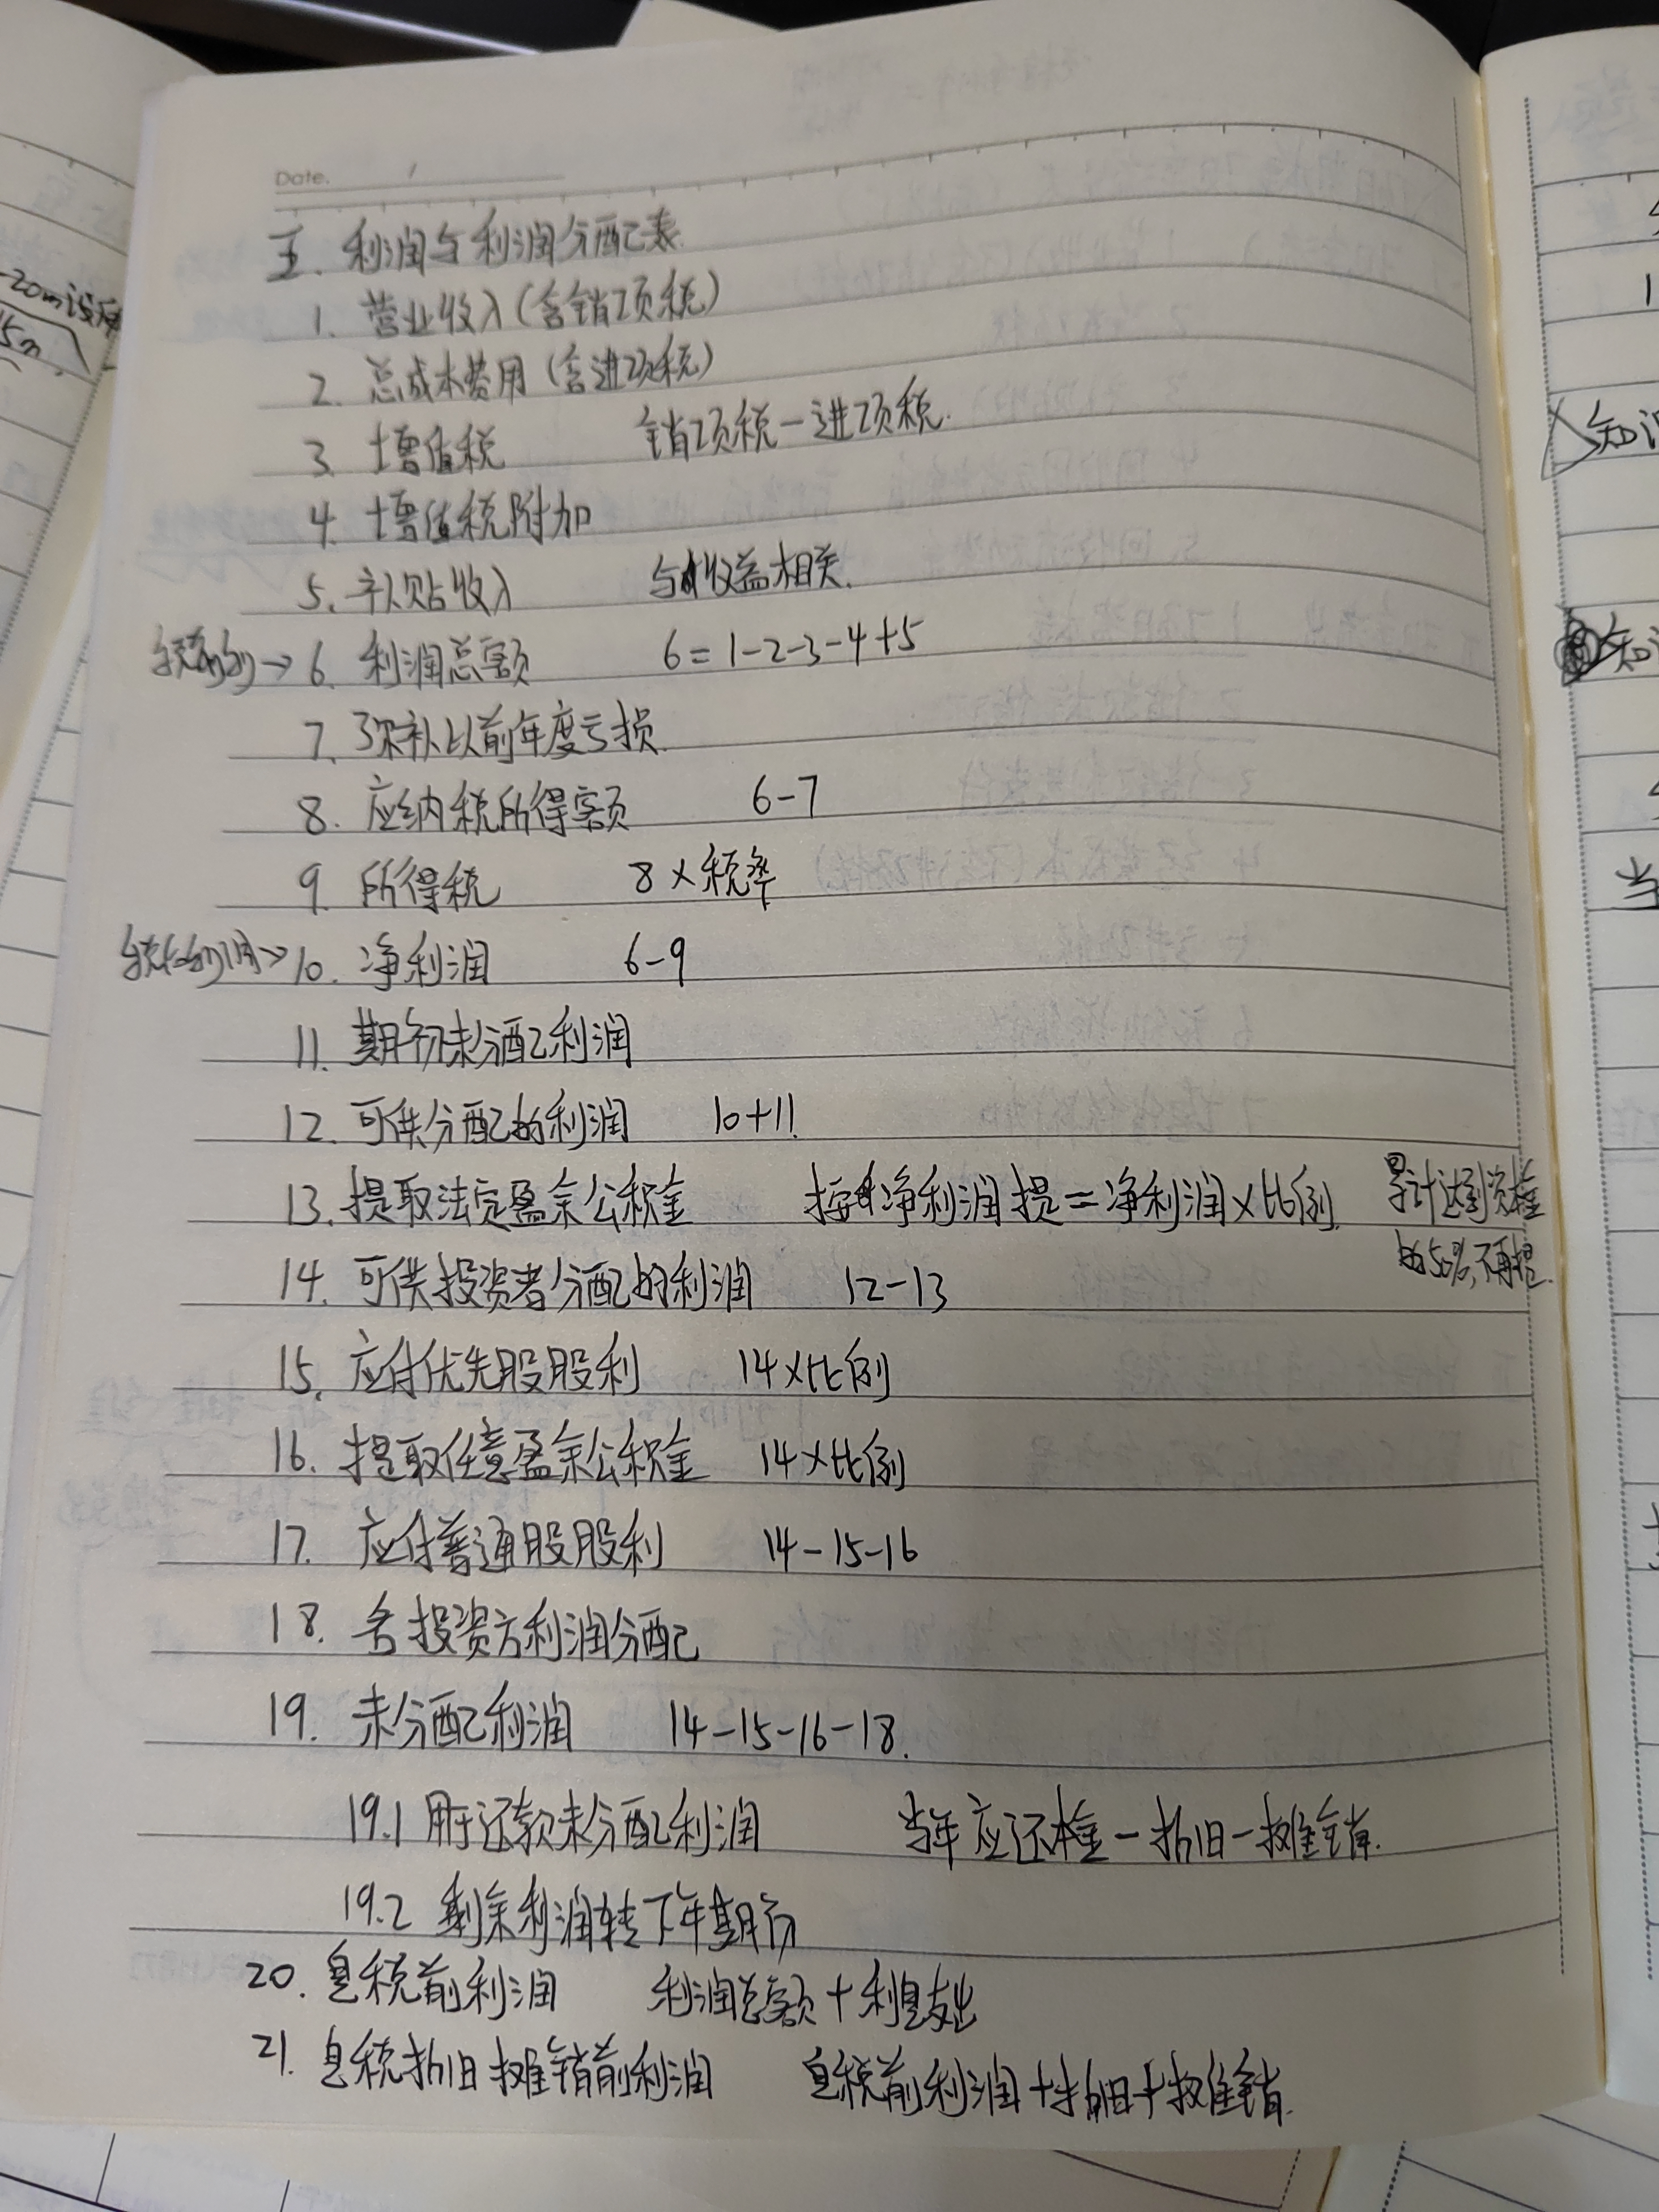 Date.
五. 利润与利润分配表
1. 营业收入(含销项税)
2. 总成本费用(含进项税)
3. 增值税 销项税-进项税.
4. 增值税附加
5. 补贴收入 与收益相关.
→ 6. 利润总额 6=1-2-3-4+5
7. 弥补以前年度亏损.
8. 应纳税所得额 6-7
9. 所得税 8×税率
→ 10. 净利润 6-9
11. 期初未分配利润
12. 可供分配的利润 10+11.
13. 提取法定盈余公积金 按净利润提=净利润×比例. 累计达到资本金
的50%,不再提.
14. 可供投资者分配的利润 12-13
15. 应付优先股股利 14×比例
16. 提取任意盈余公积金 14×比例
17. 应付普通股股利 14-15-16
18. 各投资方利润分配
19. 未分配利润 14-15-16-18.
19.1 用于还款未分配利润 当年应还本金-折旧-摊销.
19.2 剩余利润转下年期初
20. 息税前利润 利润总额+利息支出
21. 息税折旧摊销前利润 息税前利润+折旧+摊销.